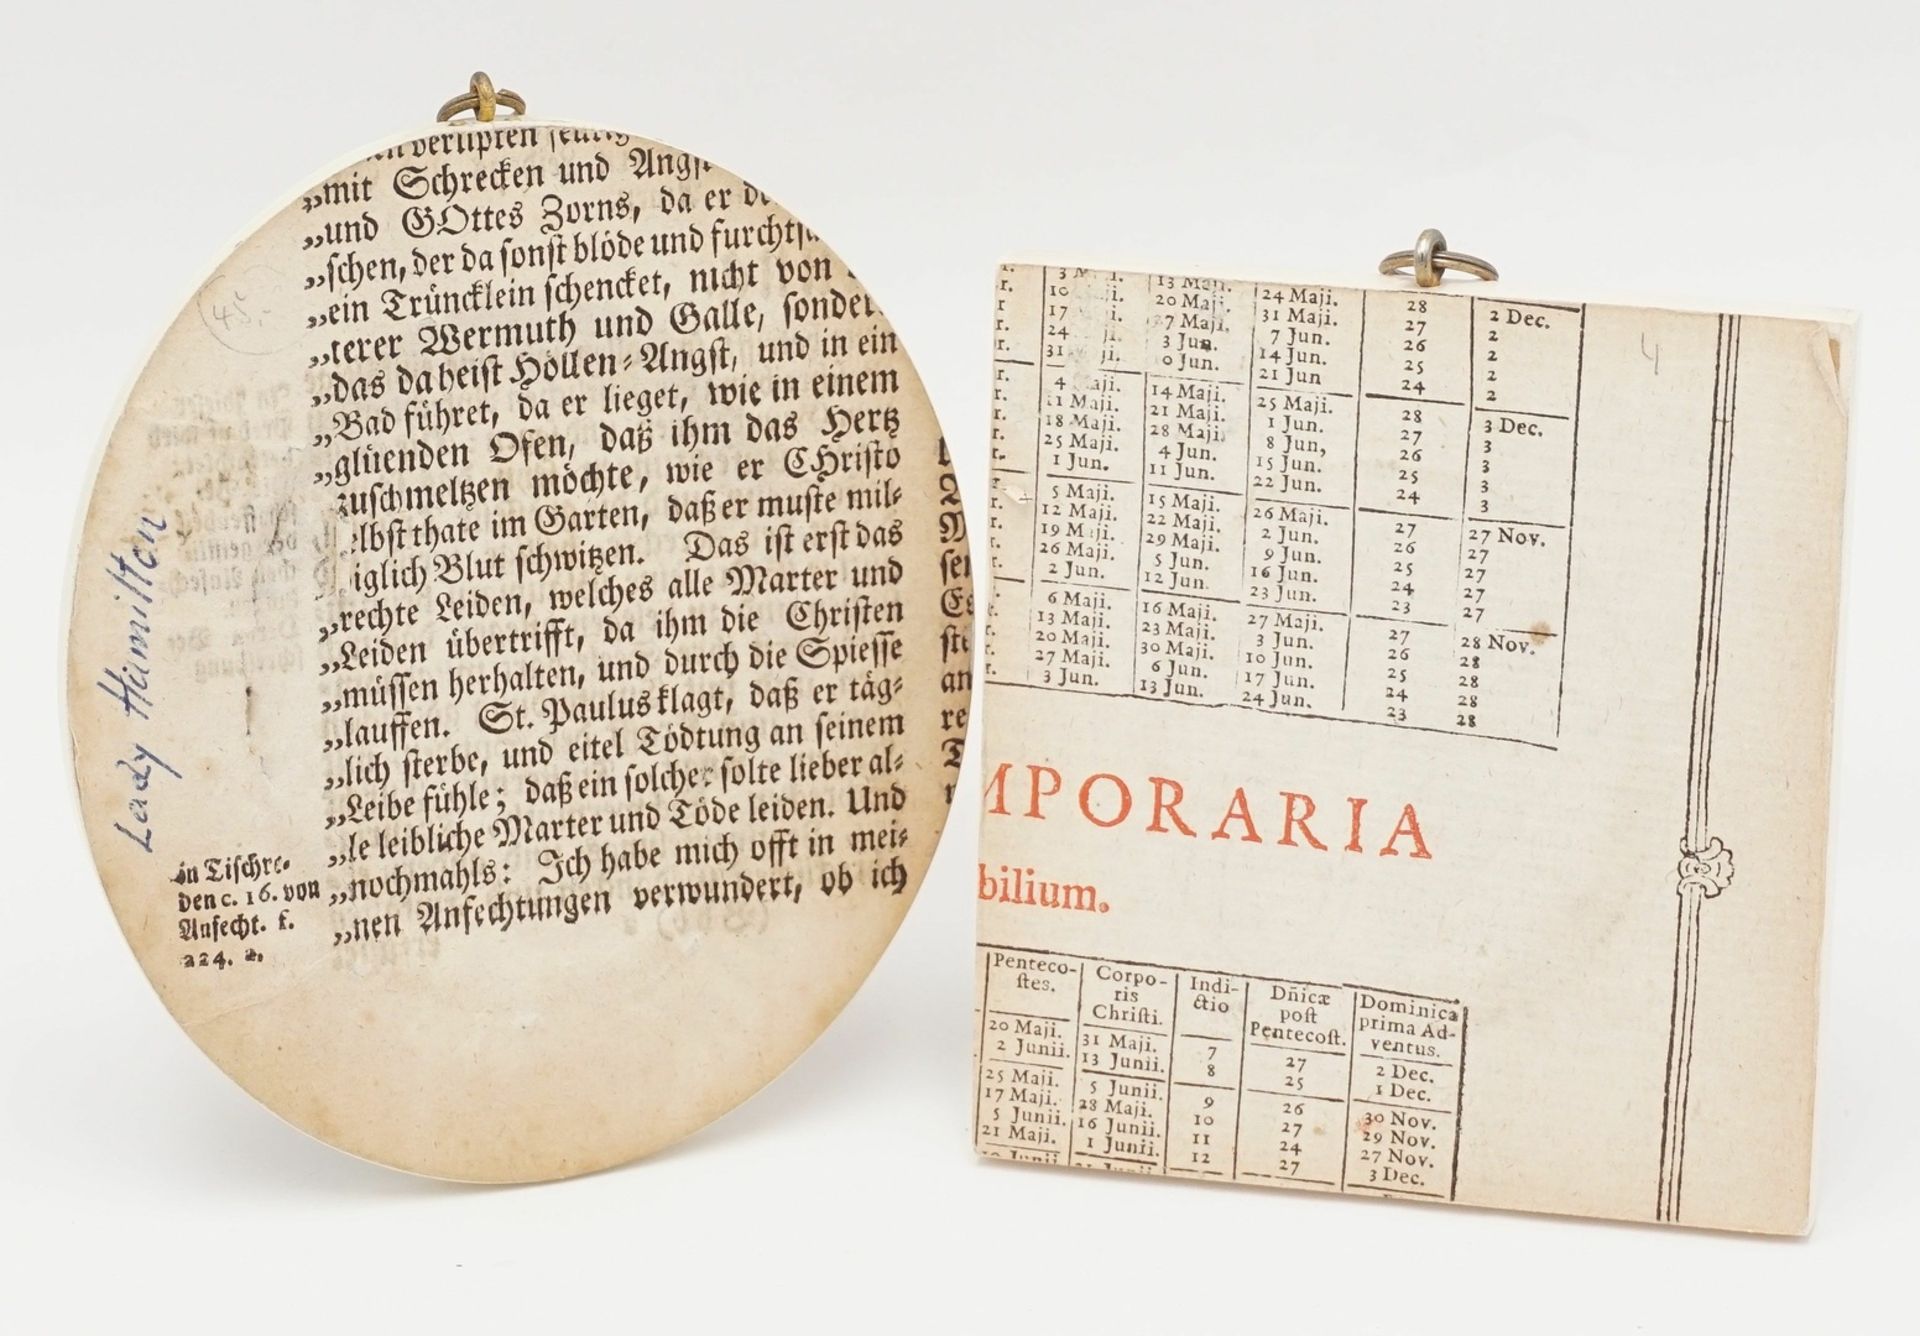 mit Schrecken und
„und GOttes Zorns, da er
„schen, der da sonst blöde und
„ein Trüncklein schencket, nicht von
„terer Wermuth und Galle,
„das da heist Höllen-Angst, und in ein
„Bad führet, da er lieget, wie in einem
„glüenden Ofen, daß ihm das Hertz
zuschmeltzen möchte, wie er CHristo
selbst thate im Garten, daß er muste mil-
diglich Blut schwitzen. Das ist erst das
„rechte Leiden, welches alle Marter und
„Leiden übertrifft, da ihm die Christen
„müssen herhalten, und durch die Spiesse
„lauffen. St. Paulus klagt, daß er täg-
„lich sterbe, und eitel Tödtung an seinem
„Leibe fühle; daß ein solcher solte lieber al-
„le leibliche Marter und Töde leiden. Und
„nochmahls: Ich habe mich offt in mei-
„nen Anfechtungen verwundert, ob ich
in Tischre-
den c. 16. von
Anfecht. f.
224. a.
Lady Hamilton
45,-
4
24 Maji. 28 2 Dec.
17 31 Maji. 27 2
24 3 Jun. 7 Jun. 26 2
31 14 Jun. 25 2
21 Jun 24 2
4 14 Maji. 25 Maji. 28 3 Dec.
11 Maji. 21 Maji. 1 Jun. 27 3
18 Maji. 28 Maji. 8 Jun, 26 3
25 Maji. 4 Jun. 15 Jun. 25 3
1 Jun. 11 Jun. 22 Jun. 24 3
5 Maji. 15 Maji. 26 Maji. 27 27 Nov.
12 Maji. 22 Maji. 2 Jun. 26 27
19 Maji. 29 Maji. 9 Jun. 25 27
26 Maji. 5 Jun. 16 Jun. 24 27
2 Jun. 12 Jun. 23 Jun. 23 27
6 Maji. 16 Maji. 27 Maji. 27 28 Nov.
13 Maji. 23 Maji. 3 Jun. 26 28
20 Maji. 30 Maji. 10 Jun. 25 28
27 Maji. 6 Jun. 17 Jun. 24 28
3 Jun. 13 Jun. 24 Jun. 23 28
MPORARIA
bilium.
Penteco-
stes.
Corpo-
ris
Christi.
Indi-
ctio
Dñicæ
post
Pentecost.
Dominica
prima Ad-
ventus.
20 Maji. 31 Maji. 7 27 2 Dec.
2 Junii. 13 Junii. 8 25 1 Dec.
25 Maji. 5 Junii. 9 26 30 Nov.
17 Maji. 28 Maji. 10 27 29 Nov.
5 Junii. 16 Junii. 11 24 27 Nov.
21 Maji. 1 Junii. 12 27 3 Dec.